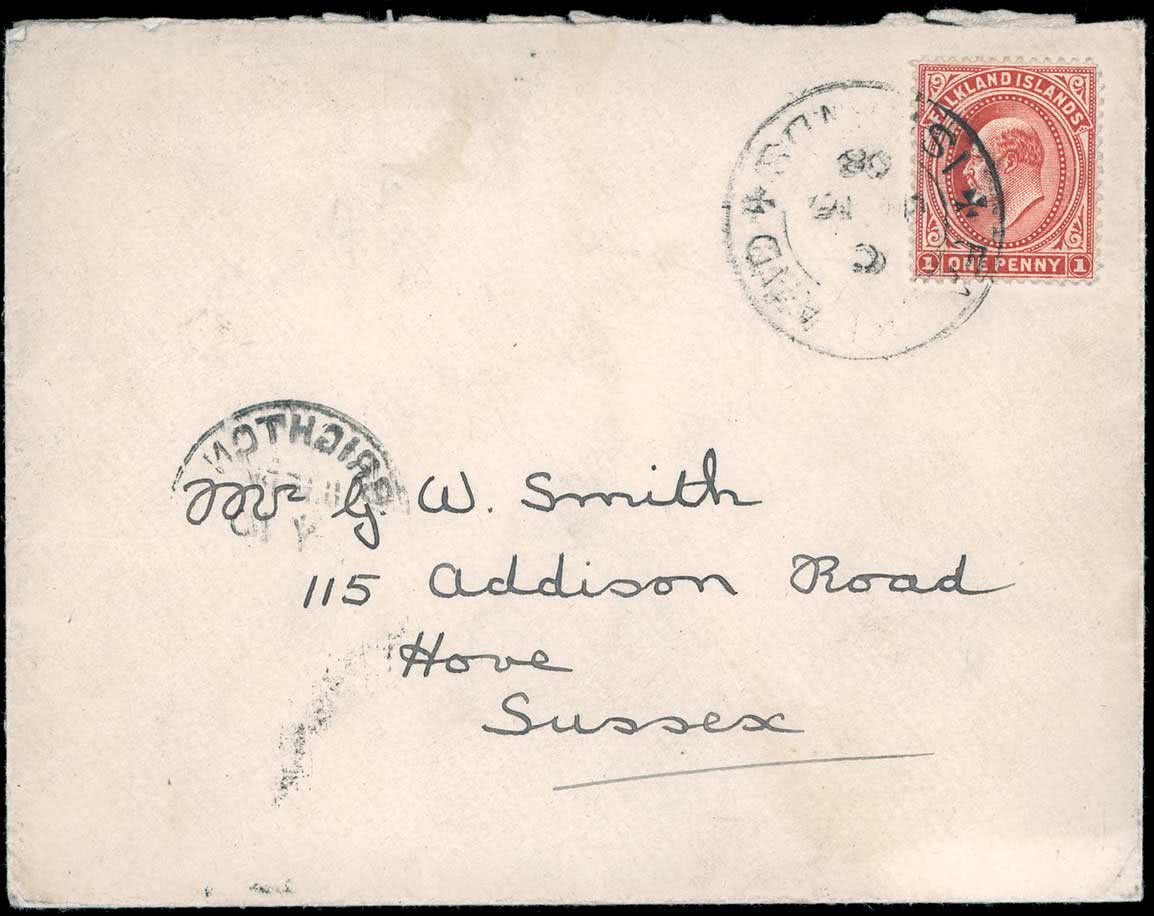 FALKLAND ISLANDS
1 ONE PENNY 1
BRIGHTON
Mr G. W. Smith
115 Addison Road
Hove
Sussex